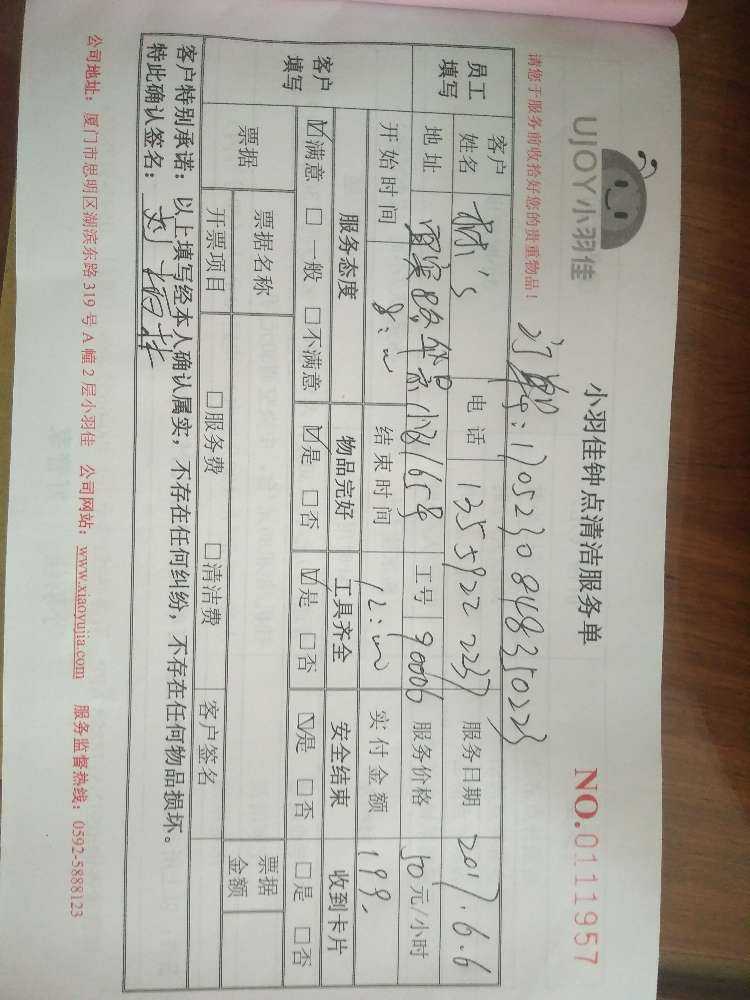 UJOY小羽佳
小羽佳钟点清洁服务单
NO.0111957
请您于服务前收拾好您的贵重物品!
170523084835022
员工填写 客户姓名 电话 1355922 2237 服务日期 2017.6.6
地址 小区165号 工号 90006 服务价格 50元/小时
开始时间 8:00 结束时间 12:00 实付金额 199.
客户填写 服务态度 物品完好 工具齐全 安全结束 收到卡片
☑满意 □一般 □不满意 ☑是 □否 ☑是 □否 ☑是 □否 □是 □否
票据 票据名称 □服务费 □清洁费 客户签名 票据金额
开票项目
客户特别承诺:以上填写经本人确认属实,不存在任何纠纷,不存在任何物品损坏。
特此确认签名:
公司地址:厦门市思明区湖滨东路319号A幢2层小羽佳 公司网站:www.xiaoyujia.com 服务监督热线:0592-5888123